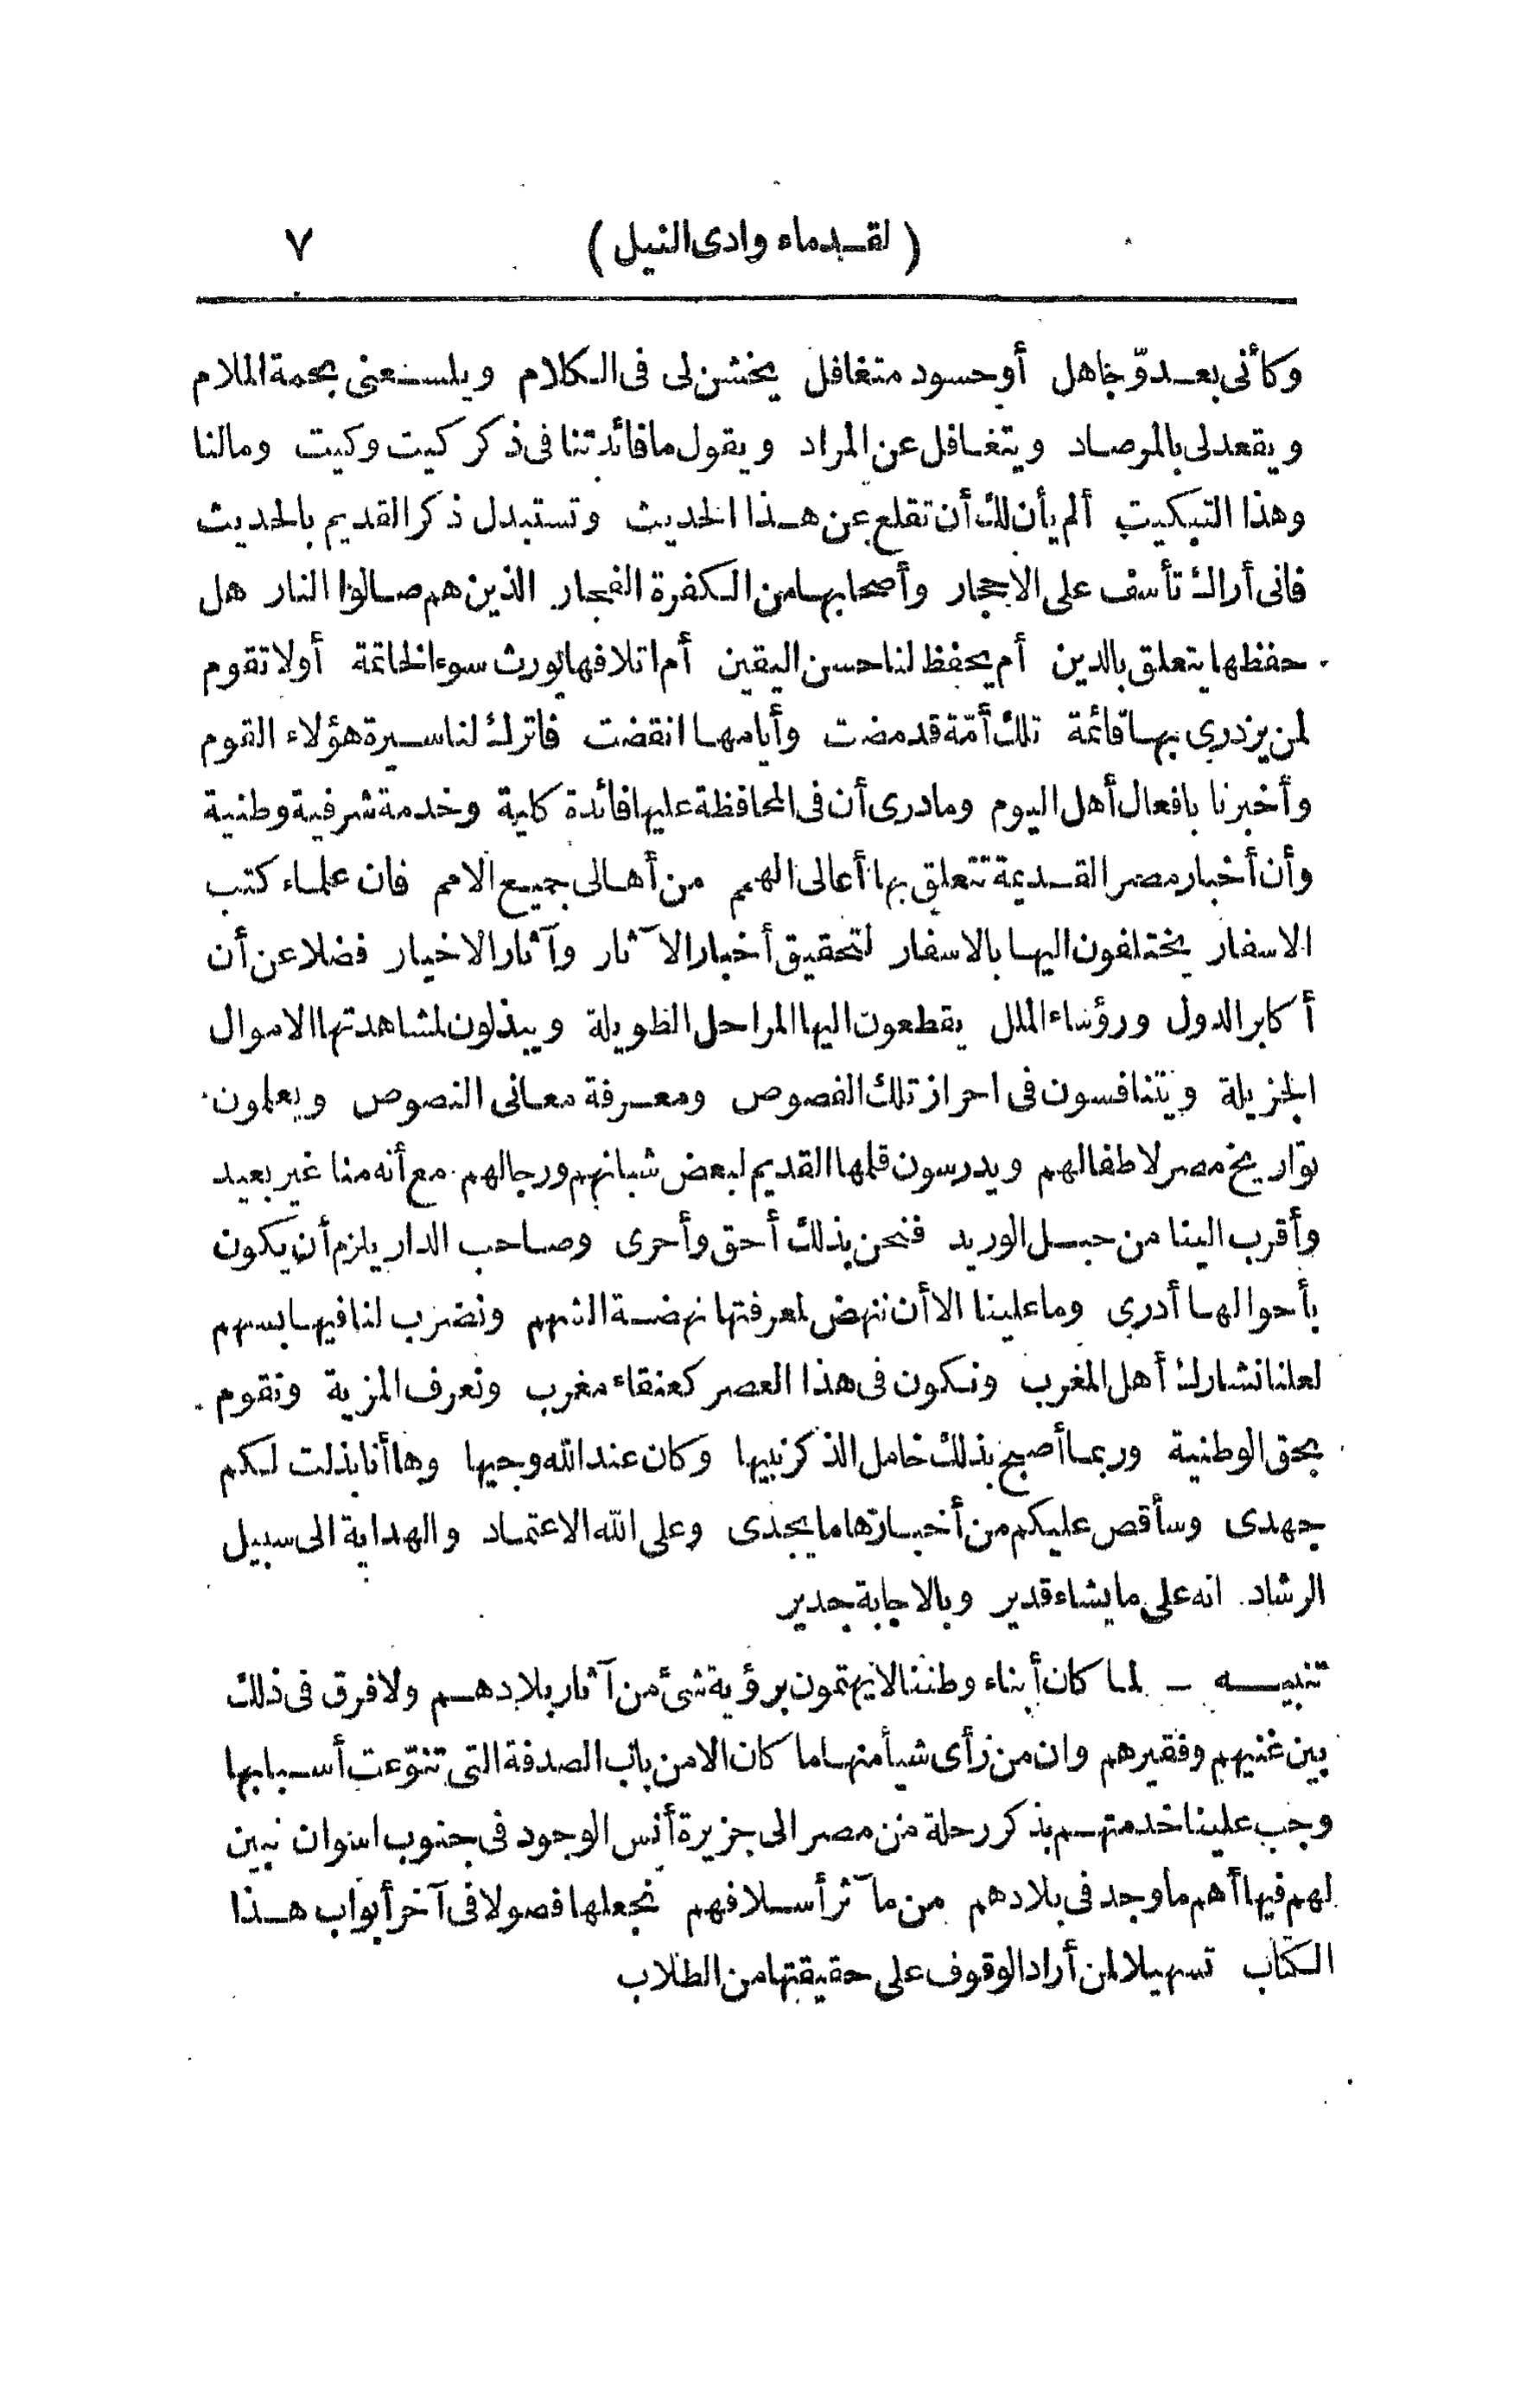 ( لقدماء وادى النيل ) ٧
وكأنى بعدوّ جاهل أو حسود متغافل يخشن لى فى الكلام ويلسعنى بحمة الملام
ويقعد لى بالمرصاد ويتغافل عن المراد ويقول ما فائدتنا فى ذكر كيت وكيت ومالنا
وهذا التبكيت ألم يأن لك أن تقلع عن هذا الحديث وتستبدل ذكر القديم بالحديث
فانى أراك تأسف على الاحجار وأصحابها من الكفرة الفجار الذين هم صالوا النار هل
حفظها يتعلق بالدين أم يحفظ لنا حسن اليقين أم اتلافها يورث سوء الخاتمة أولا تقوم
لمن يزدرى بها قائمة تلك أمّة قد مضت وأيامها انقضت فاترك لنا سيرة هؤلاء القوم
وأخبرنا بافعال أهل اليوم وما درى أن فى المحافظة عليها فائدة كلية وخدمة شرفية وطنية
وأن أخبار مصر القديمة تتعلق بها أعالى الهمم من أهالى جميع الامم فان علماء كتب
الاسفار يختلفون اليها بالاسفار لتحقيق أخبار الآثار وآثار الاخيار فضلا عن أن
أكابر الدول ورؤساء الملل يقطعون اليها المراحل الطويلة ويبذلون لمشاهدتها الاموال
الجزيلة ويتنافسون فى احراز تلك الفصوص ومعرفة معانى النصوص ويعلمون
تواريخ مصر لاطفالهم ويدرسون قلمها القديم لبعض شبانهم ورجالهم مع أنه منا غير بعيد
وأقرب الينا من حبل الوريد فنحن بذلك أحق وأحرى وصاحب الدار يلزم أن يكون
بأحوالها أدرى وما علينا الا أن ننهض لمعرفتها نهضة الشهم ونضرب لنا فيها بسهم
لعلنا نشارك أهل المغرب ونكون فى هذا العصر كعنقاء مغرب ونعرف المزية ونقوم
بحق الوطنية وربما أصبح بذلك خامل الذكر نبيها وكان عند الله وجيها وها أنا بذلت لكم
جهدى وسأقص عليكم من أخبارها ما يجدى وعلى الله الاعتماد والهداية الى سبيل
الرشاد انه على ما يشاء قدير وبالاجابة جدير
تنبيه - لما كان أبناء وطننا لا يهتمون برؤية شئ من آثار بلادهم ولا فرق فى ذلك
بين غنيهم وفقيرهم وان من رأى شيأ منها ما كان الا من باب الصدفة التى تنوّعت أسبابها
وجب علينا خدمتهم بذكر رحلة من مصر الى جزيرة أنس الوجود فى جنوب اسوان نبين
لهم فيها أهم ما وجد فى بلادهم من مآثر أسلافهم نجعلها فصولا فى آخر أبواب هذا
الكتاب تسهيلا لمن أراد الوقوف على حقيقتها من الطلاب